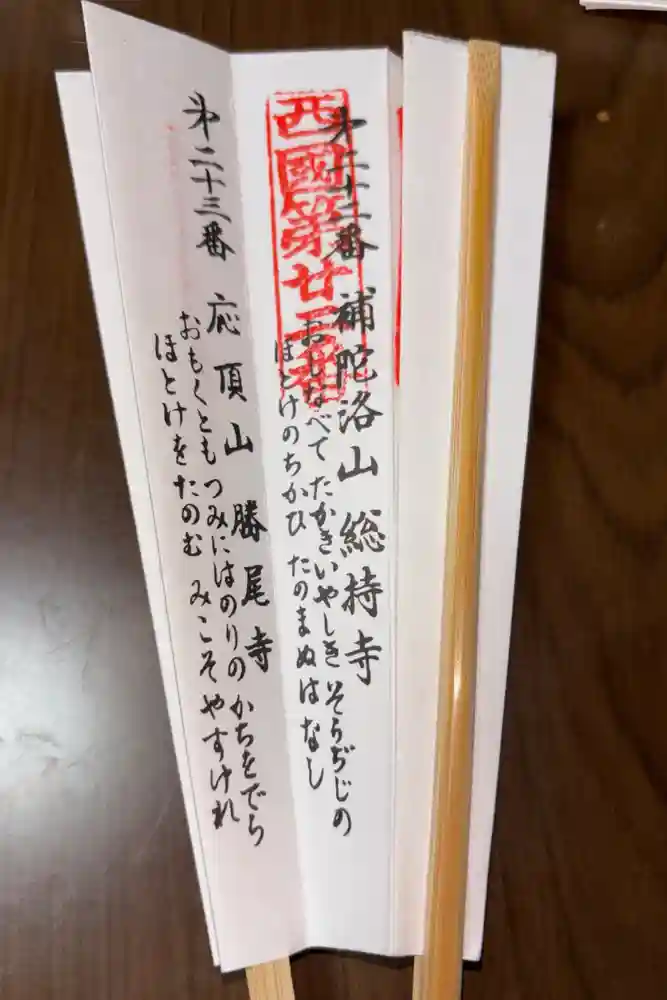 第二十二番 補陀洛山 総持寺
おしなべて たかきいやしき そうぢじの
ほとけのちかひ たのまぬはなし
西國第廿二番
第二十三番 応頂山 勝尾寺
おもくとも つみにはのりの かちをでら
ほとけをたのむ みこそやすけれ